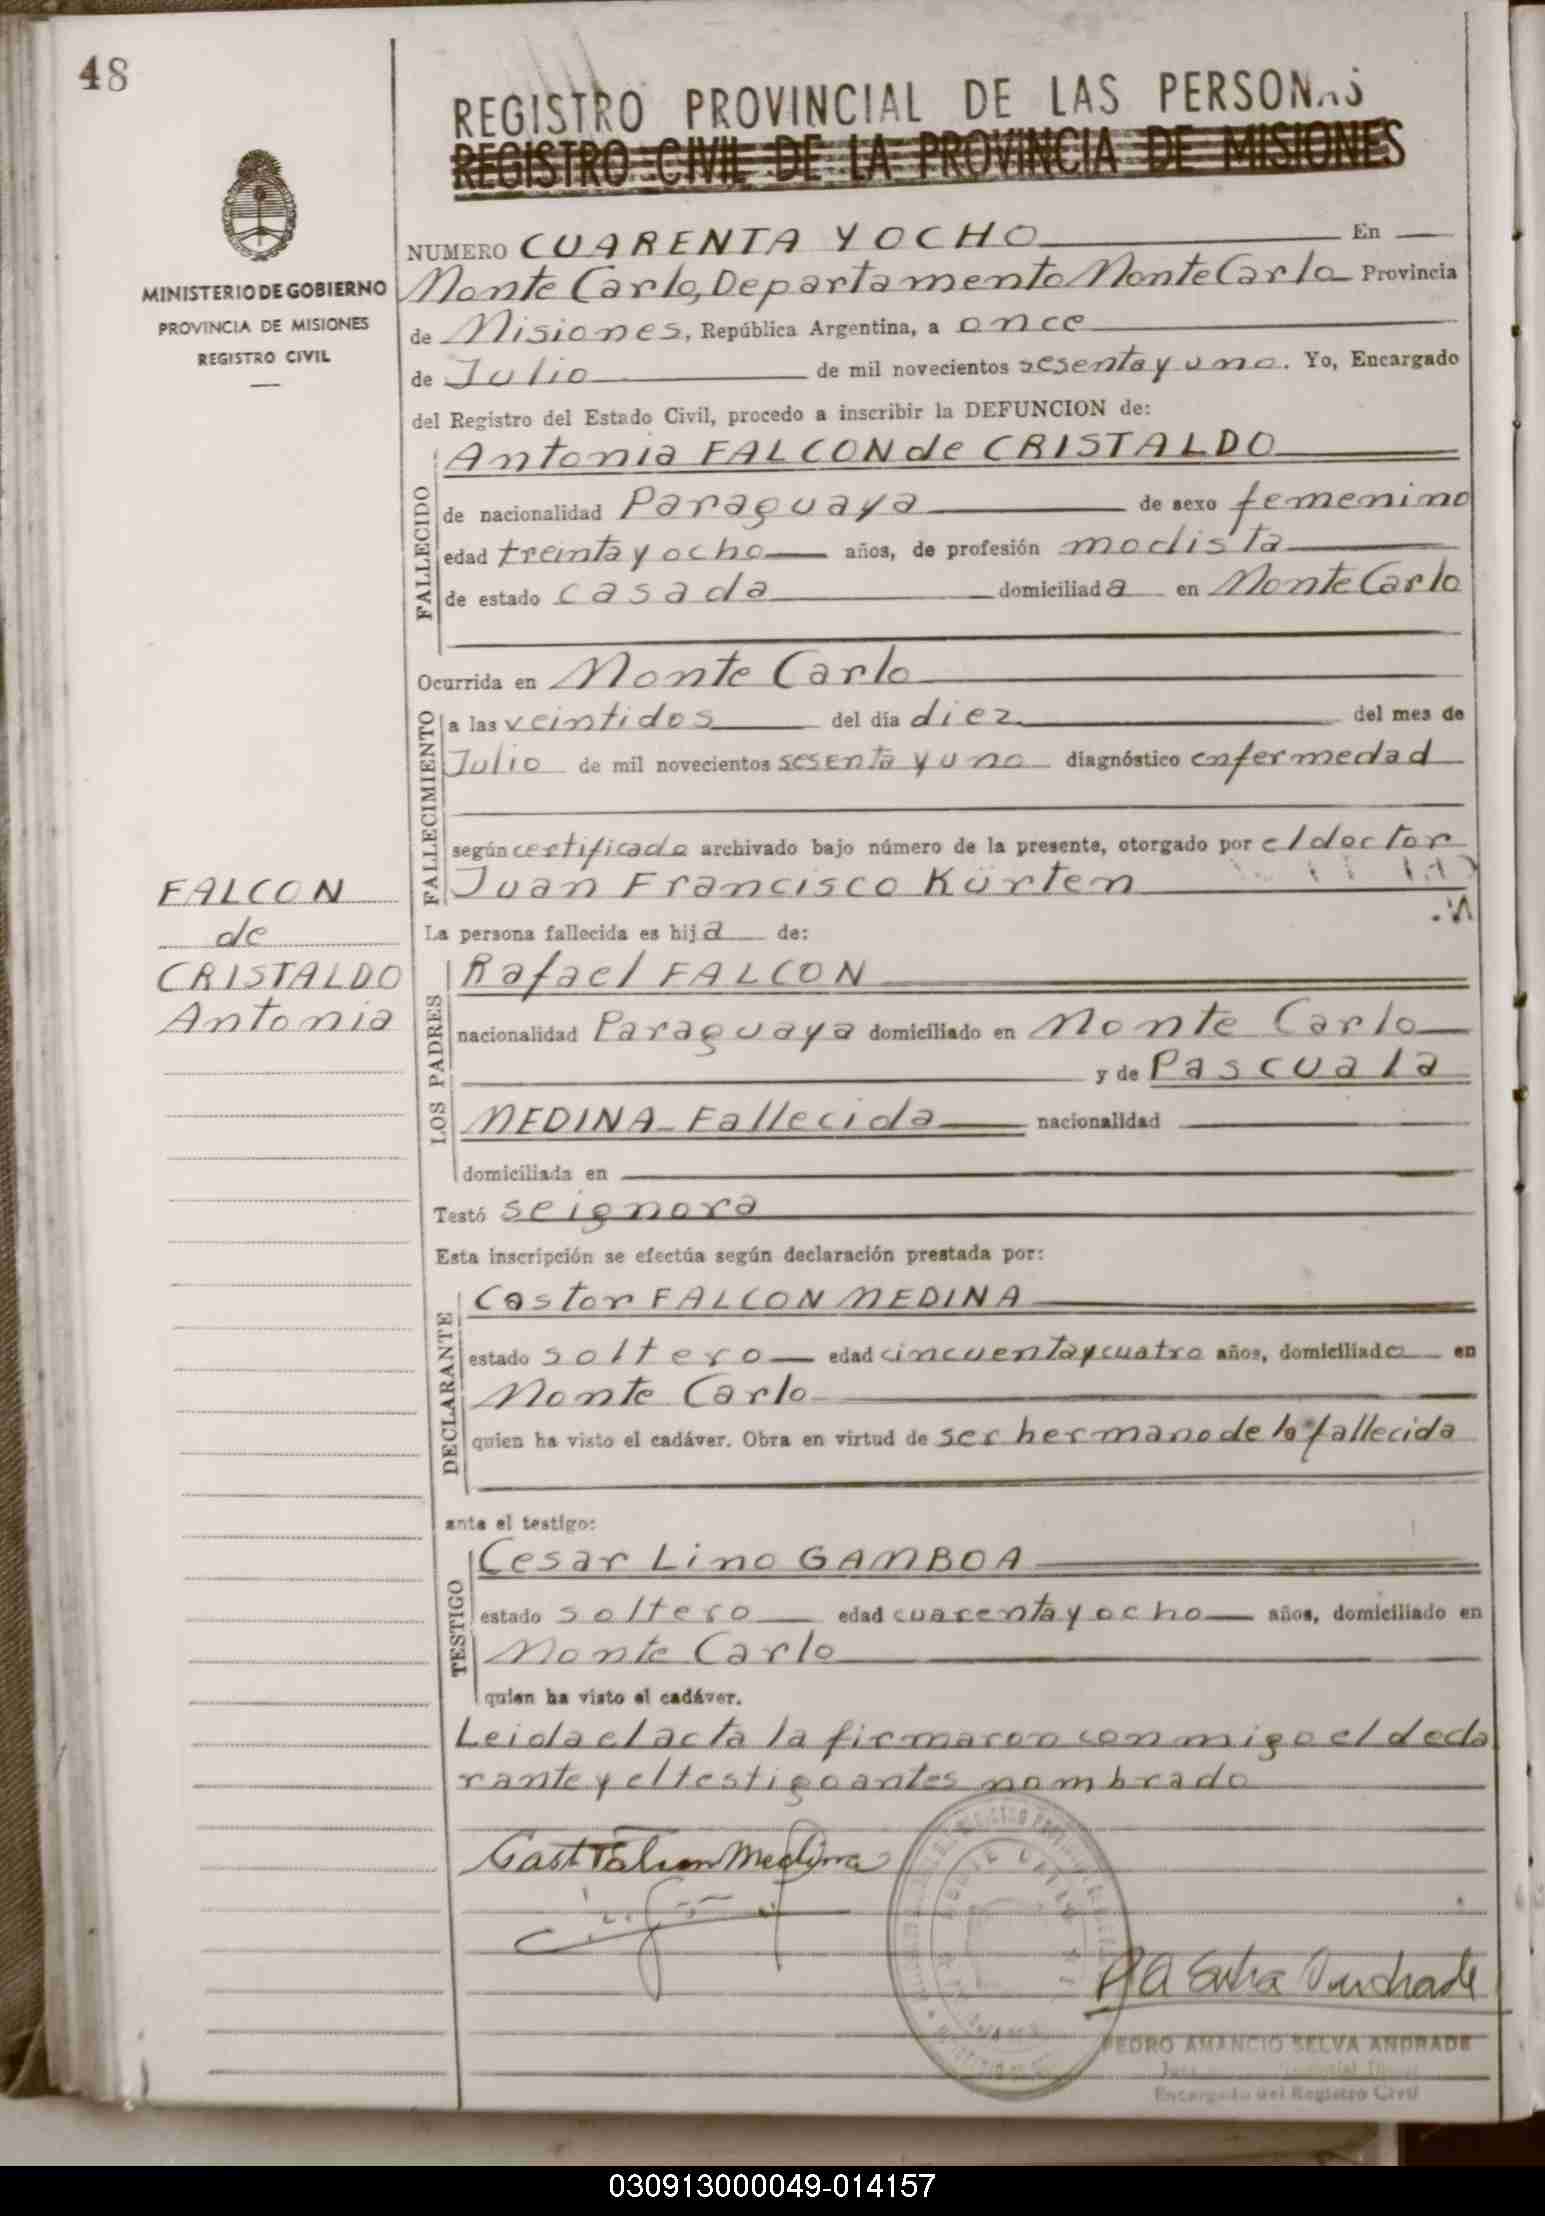 48
REGISTRO PROVINCIAL DE LAS PERSONAS
REGISTRO CIVIL DE LA PROVINCIA DE MISIONES
MINISTERIO DE GOBIERNO
PROVINCIA DE MISIONES
REGISTRO CIVIL
NUMERO CUARENTA Y OCHO En
Monte Carlo, Departamento Monte Carlo Provincia
de Misiones, República Argentina, a once
de Julio de mil novecientos sesenta y uno. Yo, Encargado
del Registro del Estado Civil, procedo a inscribir la DEFUNCION de:
FALLECIDO
Antonia FALCON de CRISTALDO
de nacionalidad Paraguaya de sexo femenino
edad treinta y ocho años, de profesión modista
de estado casada domiciliada en Monte Carlo
Ocurrida en Monte Carlo
FALLECIMIENTO
a las veintidos del día diez del mes de
Julio de mil novecientos sesenta y uno diagnóstico enfermedad
según certificado archivado bajo número de la presente, otorgado por el doctor
Juan Francisco Kürten
FALCON
de
CRISTALDO
Antonia
La persona fallecida es hija de:
LOS PADRES
Rafael FALCON
nacionalidad Paraguaya domiciliado en Monte Carlo
y de Pascuala
MEDINA Fallecida nacionalidad
domiciliada en
Testó se ignora
Esta inscripción se efectúa según declaración prestada por:
DECLARANTE
Castor FALCON MEDINA
estado soltero edad cincuenta y cuatro años, domiciliado en
Monte Carlo
quien ha visto el cadáver. Obra en virtud de ser hermano de la fallecida
ante el testigo:
TESTIGO
Cesar Lino GAMBOA
estado soltero edad cuarenta y ocho años, domiciliado en
Monte Carlo
quien ha visto el cadáver.
Leida el acta la firmaron conmigo el decla
rante y el testigo antes nombrado
Cast Falcon Medina
PA Selva Andrade
PEDRO AMANCIO SELVA ANDRADE
Encargado del Registro Civil
030913000049-014157